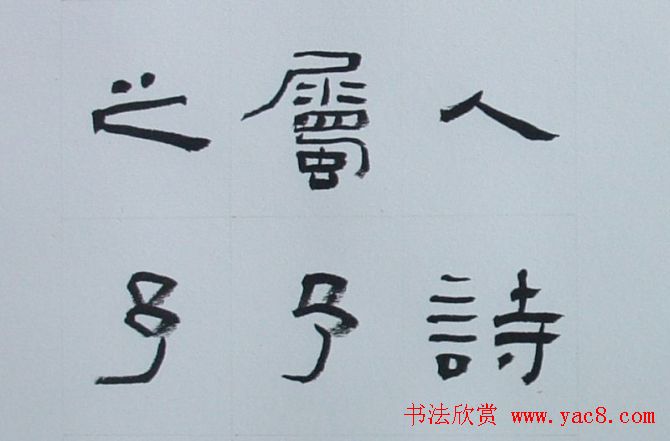 人詩
屬予
之予
书法欣赏 www.yac8.com